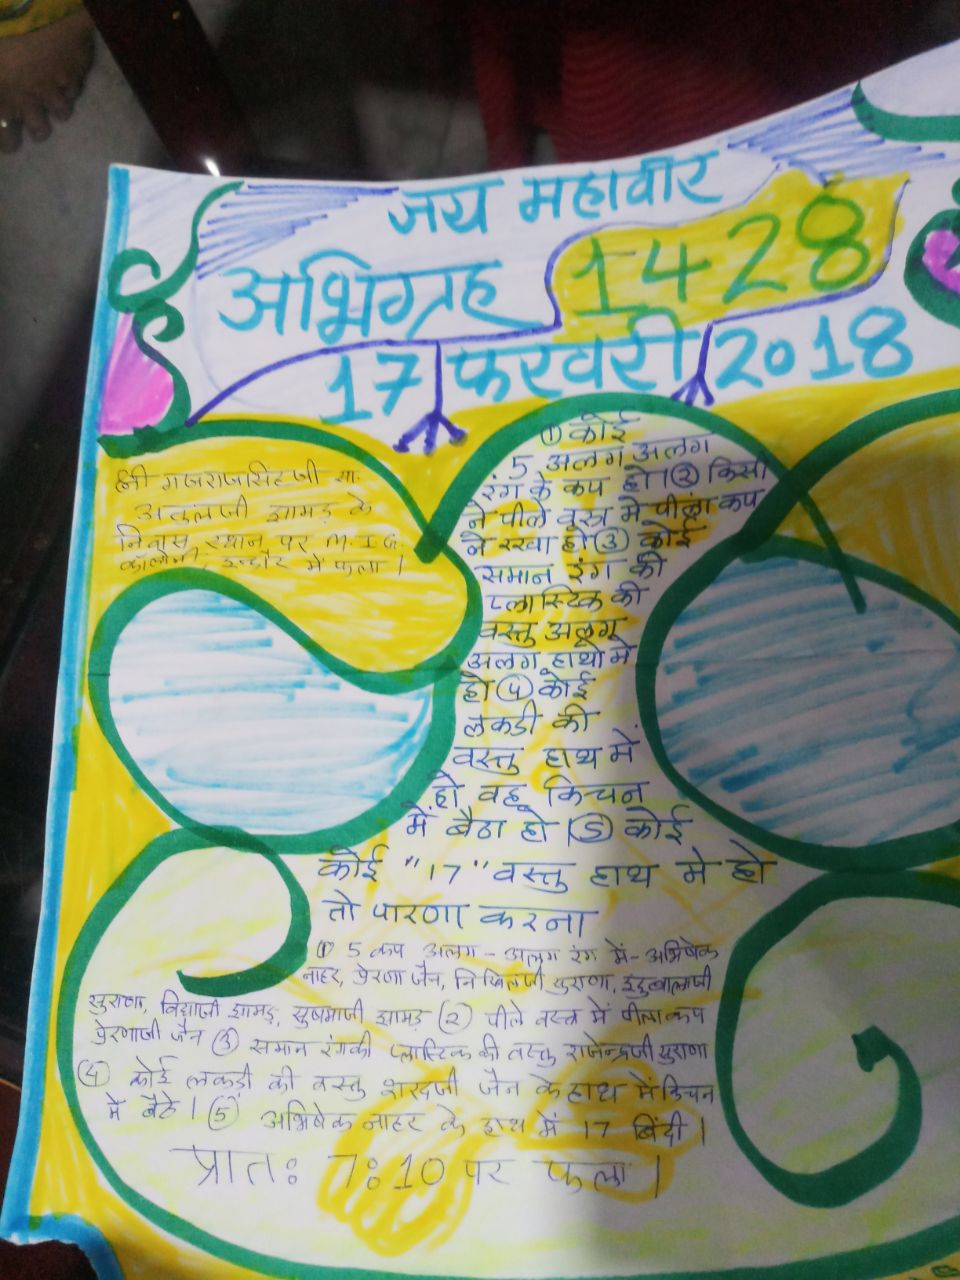 जय महावीर
अभिग्रह 1428
17 फरवरी 2018
श्री गजराजसिटजी या.
अतुलजी झामड़ के
निवास स्थान पर M.I.G.
कॉलोनी, इन्दौर में फला।
① कोई
5 अलग अलग
रंग के कप हो। ② किसी
ने पीले वस्त्र में पीला कप
ने रखा हो ③ कोई
समान रंग की
प्लास्टिक की
वस्तु अलग
अलग हाथो मे
हो ④ कोई
लकडी की
वस्तु हाथ में
हो वह किचन
में बैठा हो। ⑤ कोई
कोई "17" वस्तु हाथ मे हो
तो पारणा करना
① 5 कप अलग - अलग रंग में - अभिषेक
नाहर, प्रेरणा जैन, निखिलजी सुराणा, इंदुबालाजी
सुराणा, विद्याजी झामड़, सुषमाजी झामड़ ② पीले वस्त्र में पीला कप
प्रेरणाजी जैन ③ समान रंगकी प्लास्टिक की वस्तु राजेन्द्रजी सुराणा
④ कोई लकड़ी की वस्तु शरदजी जैन के हाथ में किचन
में बैठे। ⑤ अभिषेक नाहर के हाथ में 17 बिंदी।
प्रातः 7:10 पर फला।